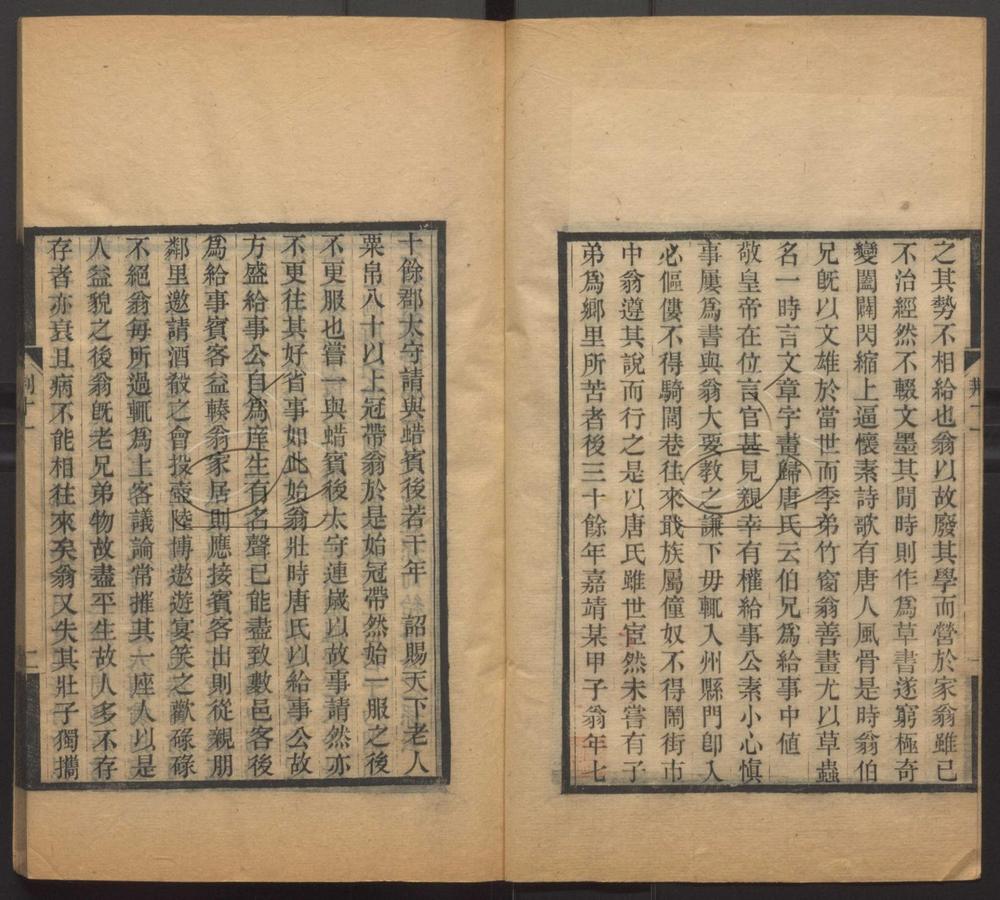 之其勢不相給也翁以故廢其學而營於家翁雖已
不治經然不輟文墨其閒時則作爲草書遂窮極奇
變闔闢閃縮上逼懷素詩歌有唐人風骨是時翁伯
兄旣以文雄於當世而季弟竹窗翁善畫尤以草蟲
名一時言文章字畫歸唐氏云伯兄爲給事中値
敬皇帝在位言官甚見親幸有權給事公素小心愼
事屢爲書與翁大要教之謙下毋輒入州縣門卽入
必傴僂不得騎閭巷往來戢族屬僮奴不得鬧街市
中翁遵其說而行之是以唐氏雖世宦然未嘗有子
弟爲鄉里所苦者後三十餘年嘉靖某甲子翁年七
十餘郡太守請與蜡賓後若干年 詔賜天下老人
粟帛八十以上冠帶翁於是始冠帶然始一服之後
不更服也嘗一與蜡賓後太守連歲以故事請然亦
不更往其好省事如此始翁壯時唐氏以給事公故
方盛給事公自爲庠生有名聲已能盡致數邑客後
爲給事賓客益輳翁家居則應接賓客出則從親朋
鄰里邀請酒殽之會投壺陸博遨遊宴笑之歡碌碌
不絕翁每所過輒爲上客議論常摧其一座人以是
人益貌之後翁旣老兄弟物故盡平生故人多不存
存者亦衰且病不能相往來矣翁又失其壯子獨攜